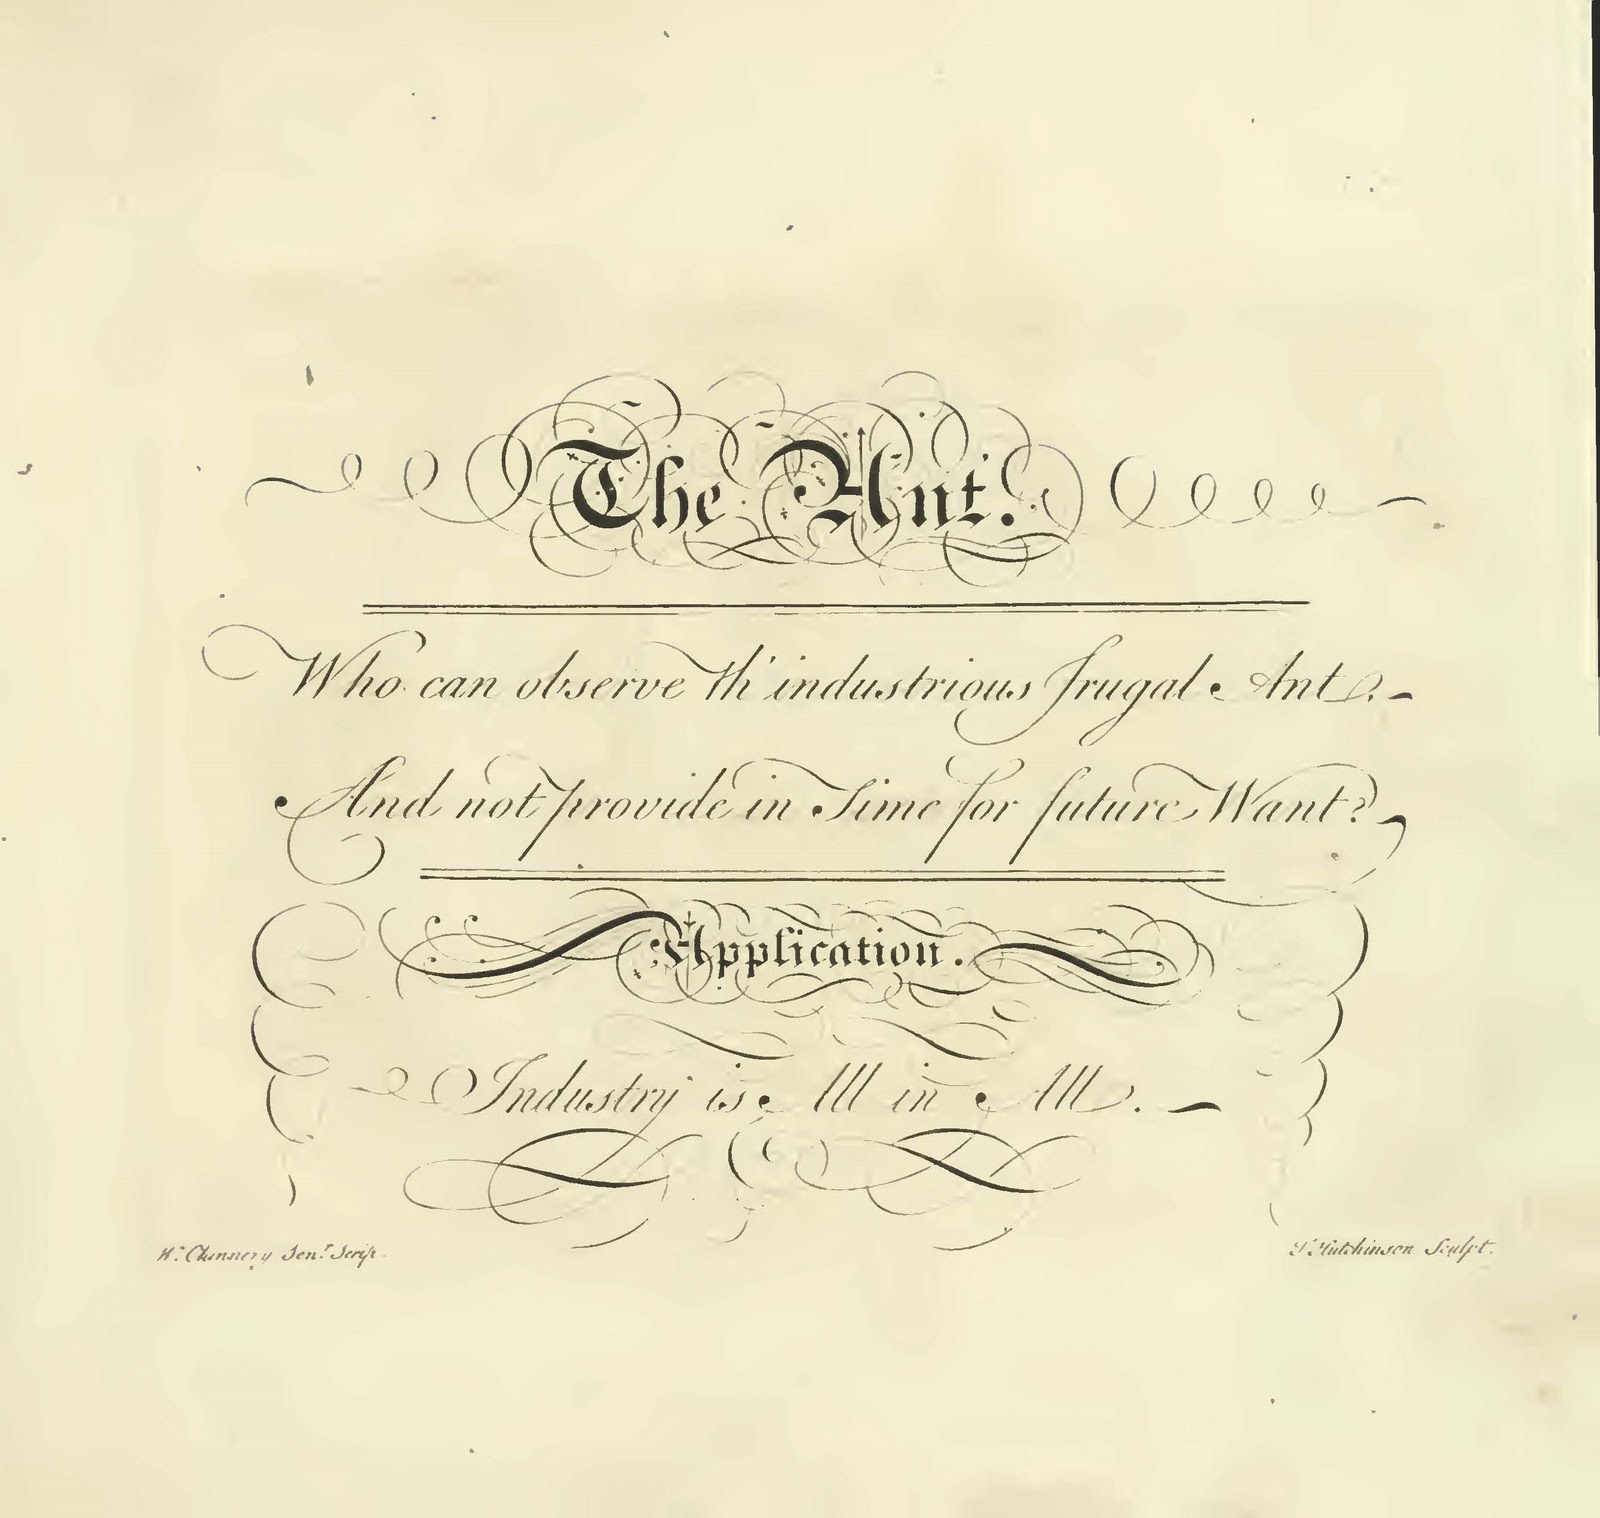 The Ant.
Who can observe th' industrious frugal Ant,
And not provide in Time for future Want?
Application.
Industry is All in All.
Wm. Chinnery Senr. Scrip.
I. Hutchinson Sculpt.